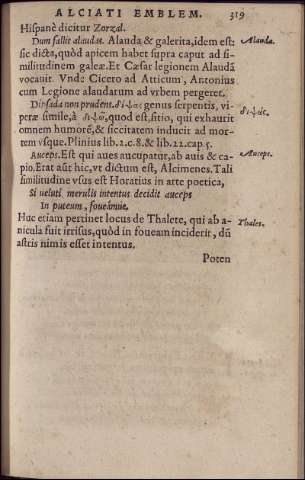 ALCIATI EMBLEM. 319
Hispanè dicitur Zorzal.
Dum fallit alaudas. Alauda & galerita, idem est: Alauda.
sic dicta, quòd apicem habet supra caput ad si-
militudinem galeæ. Et Cæsar legionem Alaudā
vocauit. Vnde Cicero ad Atticum, Antonius
cum Legione alaudarum ad vrbem pergeret.
Dipsada non prudent. διψὰς genus serpentis, vi- διψὰς.
peræ simile, à διψῶ, quod est, sitio, qui exhaurit
omnem humorē, & siccitatem inducit ad mor-
tem vsque. Plinius lib. 2. c. 8. & lib. 22. cap. 5.
Auceps. Est qui aues aucupatur, ab auis & ca- Auceps.
pio. Erat aūt hic, vt dictum est, Alcimenes. Tali
similitudine vsus est Horatius in arte poetica,
Si veluti merulis intentus decidit auceps
In puteum, foueámue.
Huc etiam pertinet locus de Thalete, qui ab a- Thales.
nicula fuit irrisus, quòd in foueam inciderit, dū
astris nimis esset intentus.
Poten